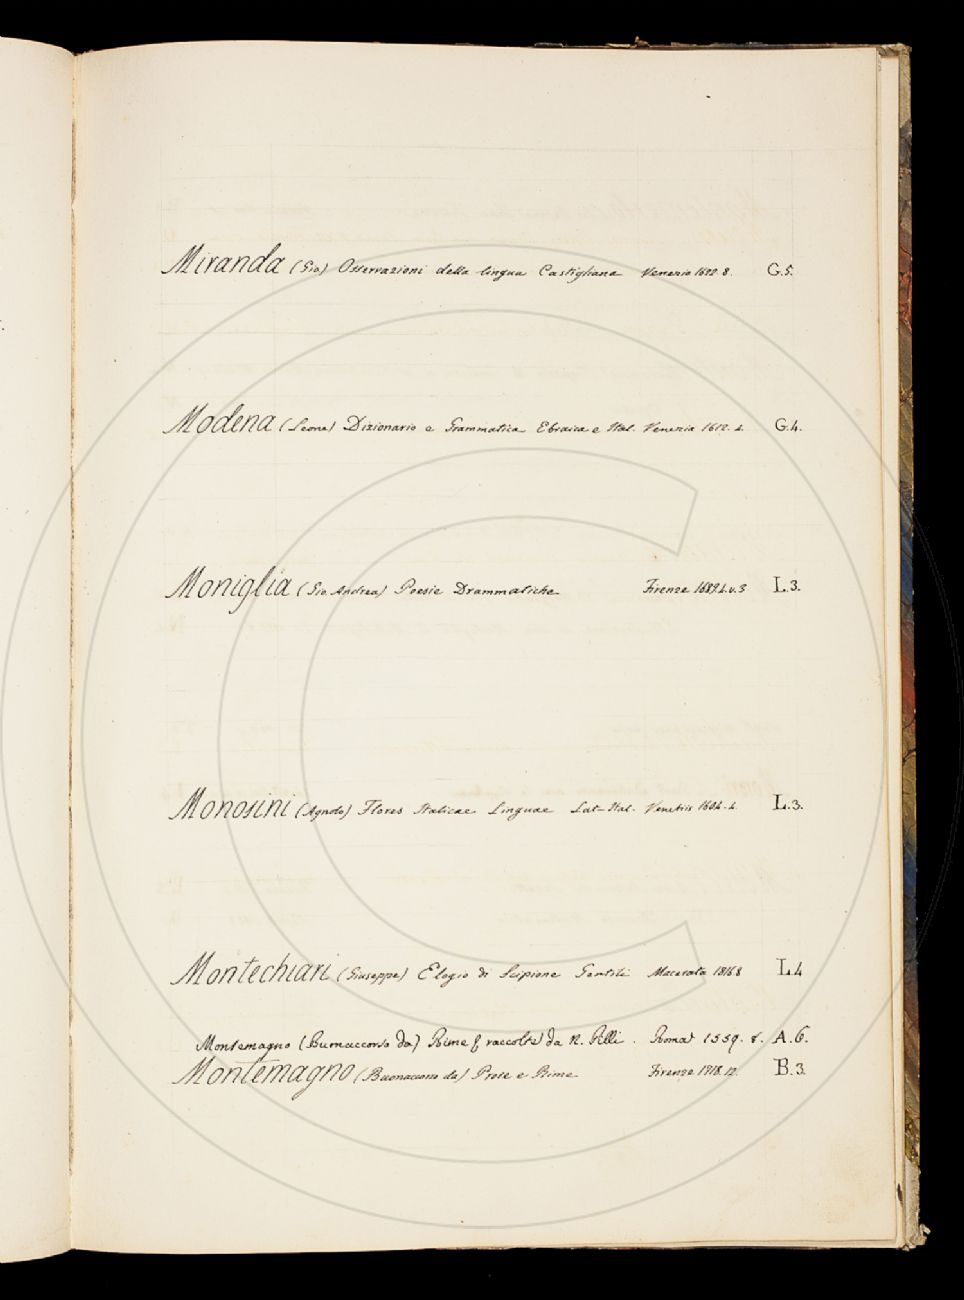 Miranda (Gio) Osservazioni della lingua Castigliana Venezia 8. G.5.
Modena (Leone) Dizionario e Grammatica Ebraica e Ital. Venezia 1612. 4. G.4.
Moniglia (Gio. Andrea) Poesie Drammatiche Firenze 1689.4.v.3 L.3.
Monosini (Agnolo) Flores Italicae Linguae Lat-Ital. Venetiis 1604. 4. L.3.
Montechiari (Giuseppe) Elogio di Scipione Gentili Macerata 8 L.4
Montemagno (Buonaccorso da) Rime raccolte da N. Pilli. Roma 1559. 8. A.6.
Montemagno (Buonaccorso da) Prose e Rime Firenze 1718. 12. B.3.